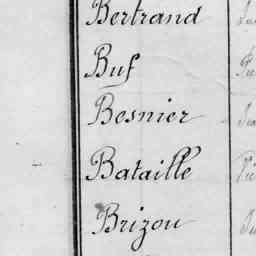 Bertrand
Buf
Besnier
Bataille
Brizou